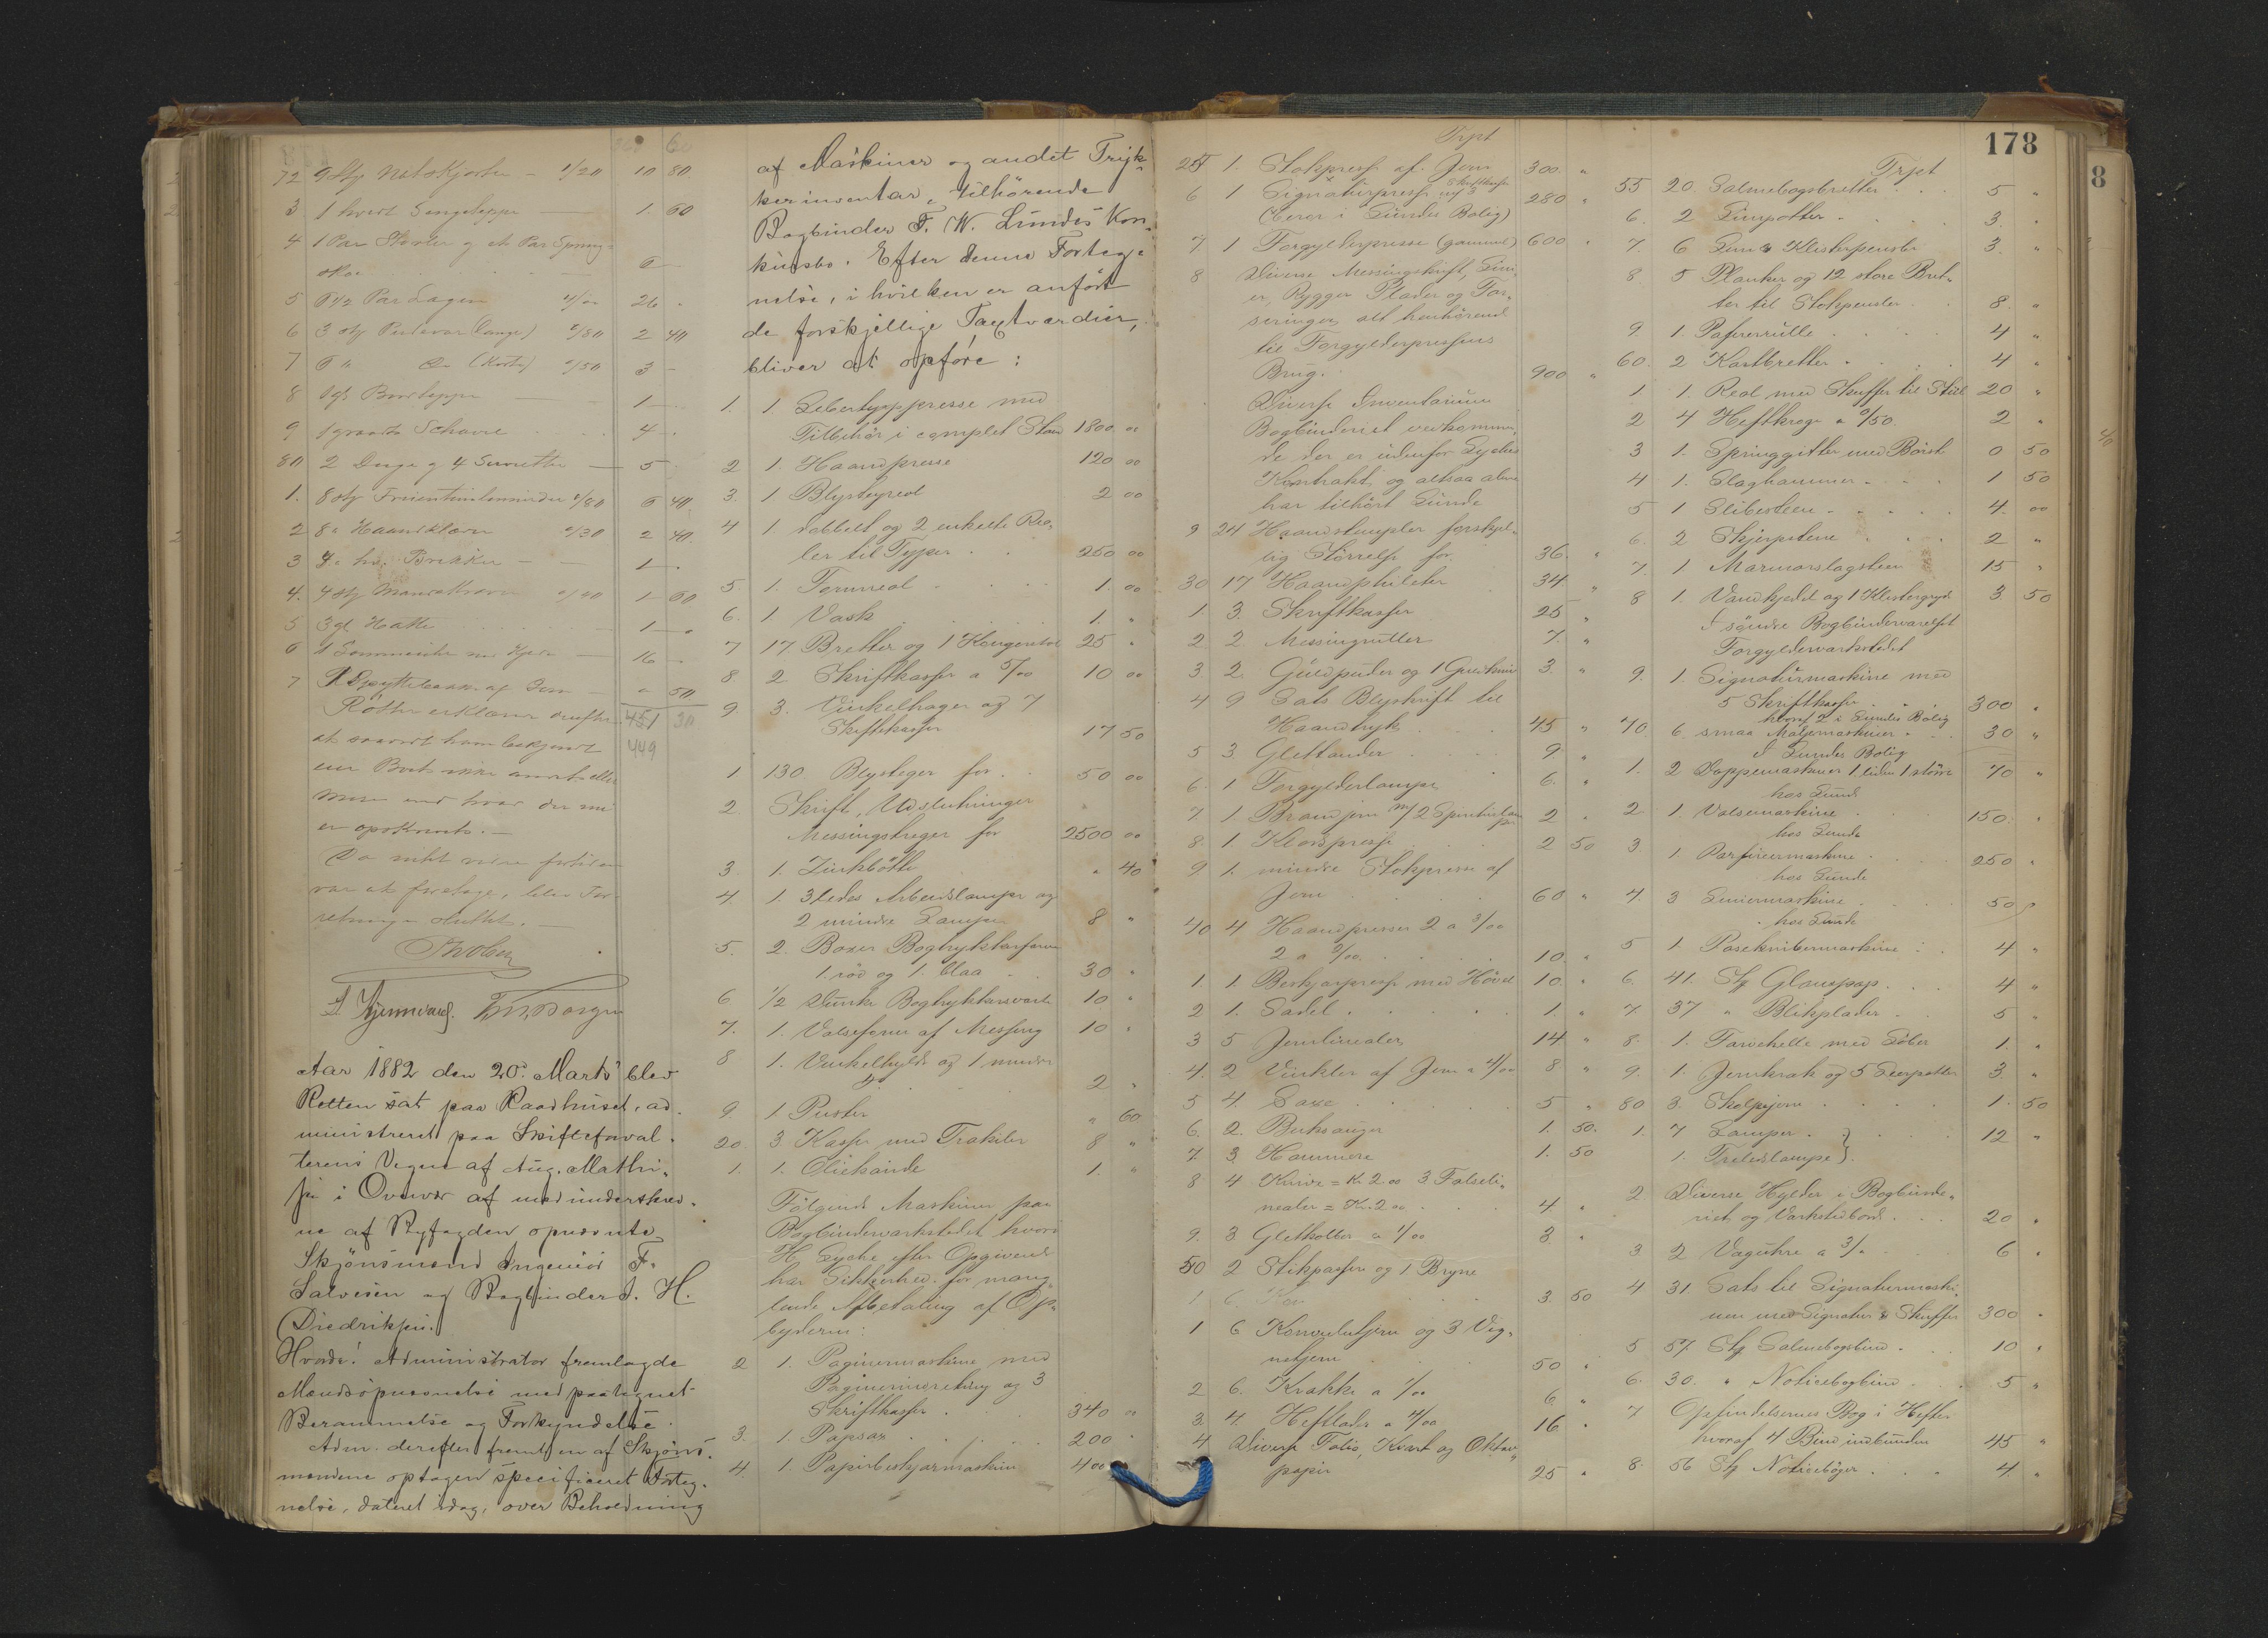 72 9 Stk Natskjorter - 1/20 10 80
3 1 hvidt Sengeteppe 1. 60
4 1 Par Støvler og et Par Spring-
skoe 6
5 6 1/2 Par Lagen 4/00 26
6 3 Stk Pudevar (lange) "/80 2 40
7 6 " Do (korte) "/50 3 -
8 1 gl Bordteppe 1 -
9 1 graat Schavl 4 -
80 2 Duge og 4 Servietter 5
1. 8 Stk "/80 6 40
2 8 " Haandklæder "/30 2 40
3 4 " hv. Brikker 1 -
4. 4 Stk "/40 1 60
5 3 gl Hatte 1 -
6 1 Lommeuhr med Kjede 16 -
7 1 Spyttebakke af Jern " 50
451 30
at saavidt ham bekjendt 449
eier Boet ikke andet eller
mere end hvad der nu
er opskrevet. -
Da intet videre fortiden
var at foretage, blev For-
retningen sluttet. -
Aar 1882 den 20. Marts blev
Retten sat paa Raadhuset, ad-
ministreret paa Skifteforval-
terens Vegne af Aug. Mathi-
sen i Overvær af medunderskrev-
ne af Byfogden opnævnte
Skjönsmænd Ingeniör F.
Salvesen og Bogbinder J. H.
Diedriksen.
Hvorda! Administrator fremlagde
Mændsopnævnelse med paategnet
Berammelse og Forkyndelse.
Adm. derefter fremlagde en af Skjöns-
mændene optagen specificeret Forteg-
nelse, dateret idag, over Beholdning
af Maskiner og andet Tryk-
keriinventar, tilhörende
Bogbinder F. W. Lundes Kon-
kursbo. Efter denne Forteg-
nelse, i hvilken er anfört
de forskjellige Taxtværdier,
bliver at opföre:
1. 1. Libertypresse med
Tilbehör i complet Stand 1800. 00
2 1. Haandpresse 120 00
3. 1 2 00
4 1. dobbelt og 2 enkelte Reo-
ler til Typer 250 00
5. 1. Formreol 1. 00
6. 1 Vask 1. "
7 17. Bretter og 1 25 "
8 2 Skriftkasser a 5/00 10 00
9. 3. Vinkelhager og 7
Skriftkasser 17 50
1. 130 Blysteger for 50 00
2. Skrift, Udslutninger
Messingstreger for 2500 00
3. 1. Zinkbötte " 40
4. 1. 3 leders Arbeidslampe og
2 mindre Lamper 8 "
5. 2. Boxer Bogtrykkerfarve
1. röd og 1. blaa 30 "
6 1/2 Dunke Bogtrykkersværte 10 "
7. 1. Valseform af Messing 10 "
8 1. Vinkelhylde og 1 mindre
2 "
9. 1. Puster " 60
20. 3 Kasser med Trakiler 8 "
1. 1. Oliekande 1. "
Fölgende Maskiner paa
Bogbinderværkstedet hvori
H. Lyche efter Opgivende
har Sikkerhed for mang-
lende Afbetaling af Op-
byderne:
2 1. Paginermaskine med
Paginerindretning og 3
Skriftkasser 340 "
3. 1. Papsax 200 "
4. 1 Papirbeskjærmaskine 400 "
Trpt
25 1. Stokpresse af Jern 300. "
6 1 Signaturpresse m/ 3 Skriftkasser 280 "
(Beror i Lundes Bolig)
7. 1 Forgylderpresse (gammel) 600 "
8 Diverse Messingskrift, Lini-
er, Rygge, Plader og For-
siringer alt henhörende
til Forgylderpressens
Brug. 900 "
Diverse Inventarium
Bogbinderiet vedkommen-
de der er udenfor Lyches
Kontrakt, og altsaa alene
har tilhört Lunde
9 24 Haandstempler forskjel-
lig Störrelse for 36. "
30 17 Haandphileter 34 "
1 3. Skriftkasser 25 "
2 2 Messingrutter 7. "
3 2. Guldpuder og 1 Guldkniv 3. "
4 9 Sats Blyskrift til
Haandtryk 45 "
5 3. Glettander 9. "
6. 1 Forgylderlampe 6. "
7. 1 Brandjern m/ 2 Spirituslamper 2 "
8. 1. Klodspresse 2 50
9 1. mindre Stokpresse af
Jern 60 "
40 4 Haandpresser 2 a 3/00
2 a 2/00 10. "
1 1. Beskjærpresse med Hövel 10. "
2 1. Sadel 1. "
3 5 Jernlinealer 14 "
4. 2 Vinkler af Jern a 4/00 8 "
5 4. Saxe 5 "
6. 2. 1. 50.
7. 3 Hammere 1. 50
8 4 Knive = Kr 2.00 3 Falseli-
nealer = Kr. 2 00 4 "
9. 3 Gletkolber a 1/00 3. "
50 2 Stikpasser og 1 Bryne 3. 50
1 6 og 3 Vig-
netjern 50 "
2 6. Krakke a 1/00 6 "
3. 4. Heftlader a 4/00 16 "
4 Diverse Folio, Kvart og Oktav-
papir 25 "
178
Trpt
55 20. Salmebogsbretter 5 "
6. 2 Limpotter 3. "
7. 6 Lim & Klisterpensler 3. "
8 5 Planker og 12 store Bret-
ter til Stokpenster 8 "
9 1. Papirrulle 4 "
60. 2 Kartbretter 4 "
1. 1. Reol med Skuffer til Stiil 20 "
2 4 Heftkroge a "/50. 2 "
3 1. Springgitter med Börste 0 50
4 1. Slaghammer 1 50
5 1 Slibesteen 4. 00
6. 2 Skjerpstene 2 "
7. 1. Marmorslagsteen 15 "
8 1. Vandkjedel og 1 Klistergryde 3 50
I söndre Bogbinderværelset
Forgylderværkstedet
9. 1. Signaturmaskine med
5 Skriftkasser 300 "
hvoraf 2 i Lundes Bolig
70. 6. smaa Maljemaskiner 30 "
I Lundes Bolig
1. 2 Doppemaskiner 1 liden 1 större 70 "
hos Lunde
2 1. Valsemaskine 150. "
hos Lunde
3. 1. Parfineermaskine 250 "
hos Lunde
4. 3 Liniermaskine 50 "
hos Lunde
5 1. Poseknibermaskine 4 "
6. 41. Stk Glanspap 4 "
7. 37 " Blikplader 5 "
8. 1. Farvehelle med Löber 1. "
9. 1. Jernkrak og 5 Leerpotter 3. "
80 3. Skolpejern 1. 50
1. 7 Lamper 12 "
1. Treledslampe
2. Diverse Hylder i Bogbinde-
riet og Værkstedbord 20 "
3 2 Væguhre a 3/" 6 "
4 31. Sats til Signaturmaski-
nen med Signatur & Skuffer 300 "
5 57. Stk Salmebogsbind 10 "
6. 30. " Noticebogbind 5 "
7 Opfindelsernes Bog i Hefter
hvoraf 4 Bind indbundne 45 "
8. 56 Stk Noticeböger 4 "
8